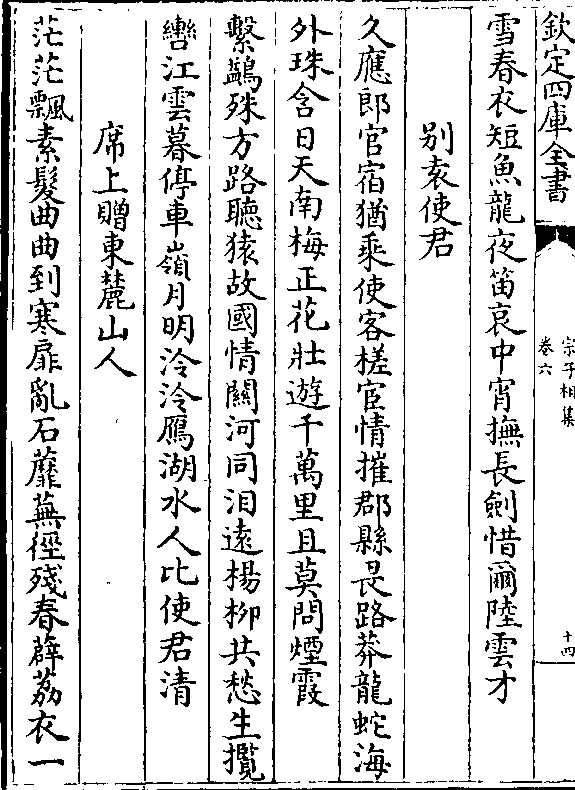 欽定四庫全書
宗子相集
卷六
十四
雪春衣短魚龍夜笛哀中宵撫長劍惜爾陸雲才
别袁使君
久應郎官宿猶乘使客槎宦情摧郡縣畏路莽龍蛇海
外珠含日天南梅正花壯遊千萬里且莫問煙霞
繫鷁殊方路聽猿故國情關河同泪遠楊柳共愁生攬
轡江雲暮停車嶺月明泠泠鴈湖水人比使君清
席上贈東麓山人
茫茫飄素髮曲曲到寒扉亂石蘼蕪徑殘春薜荔衣一